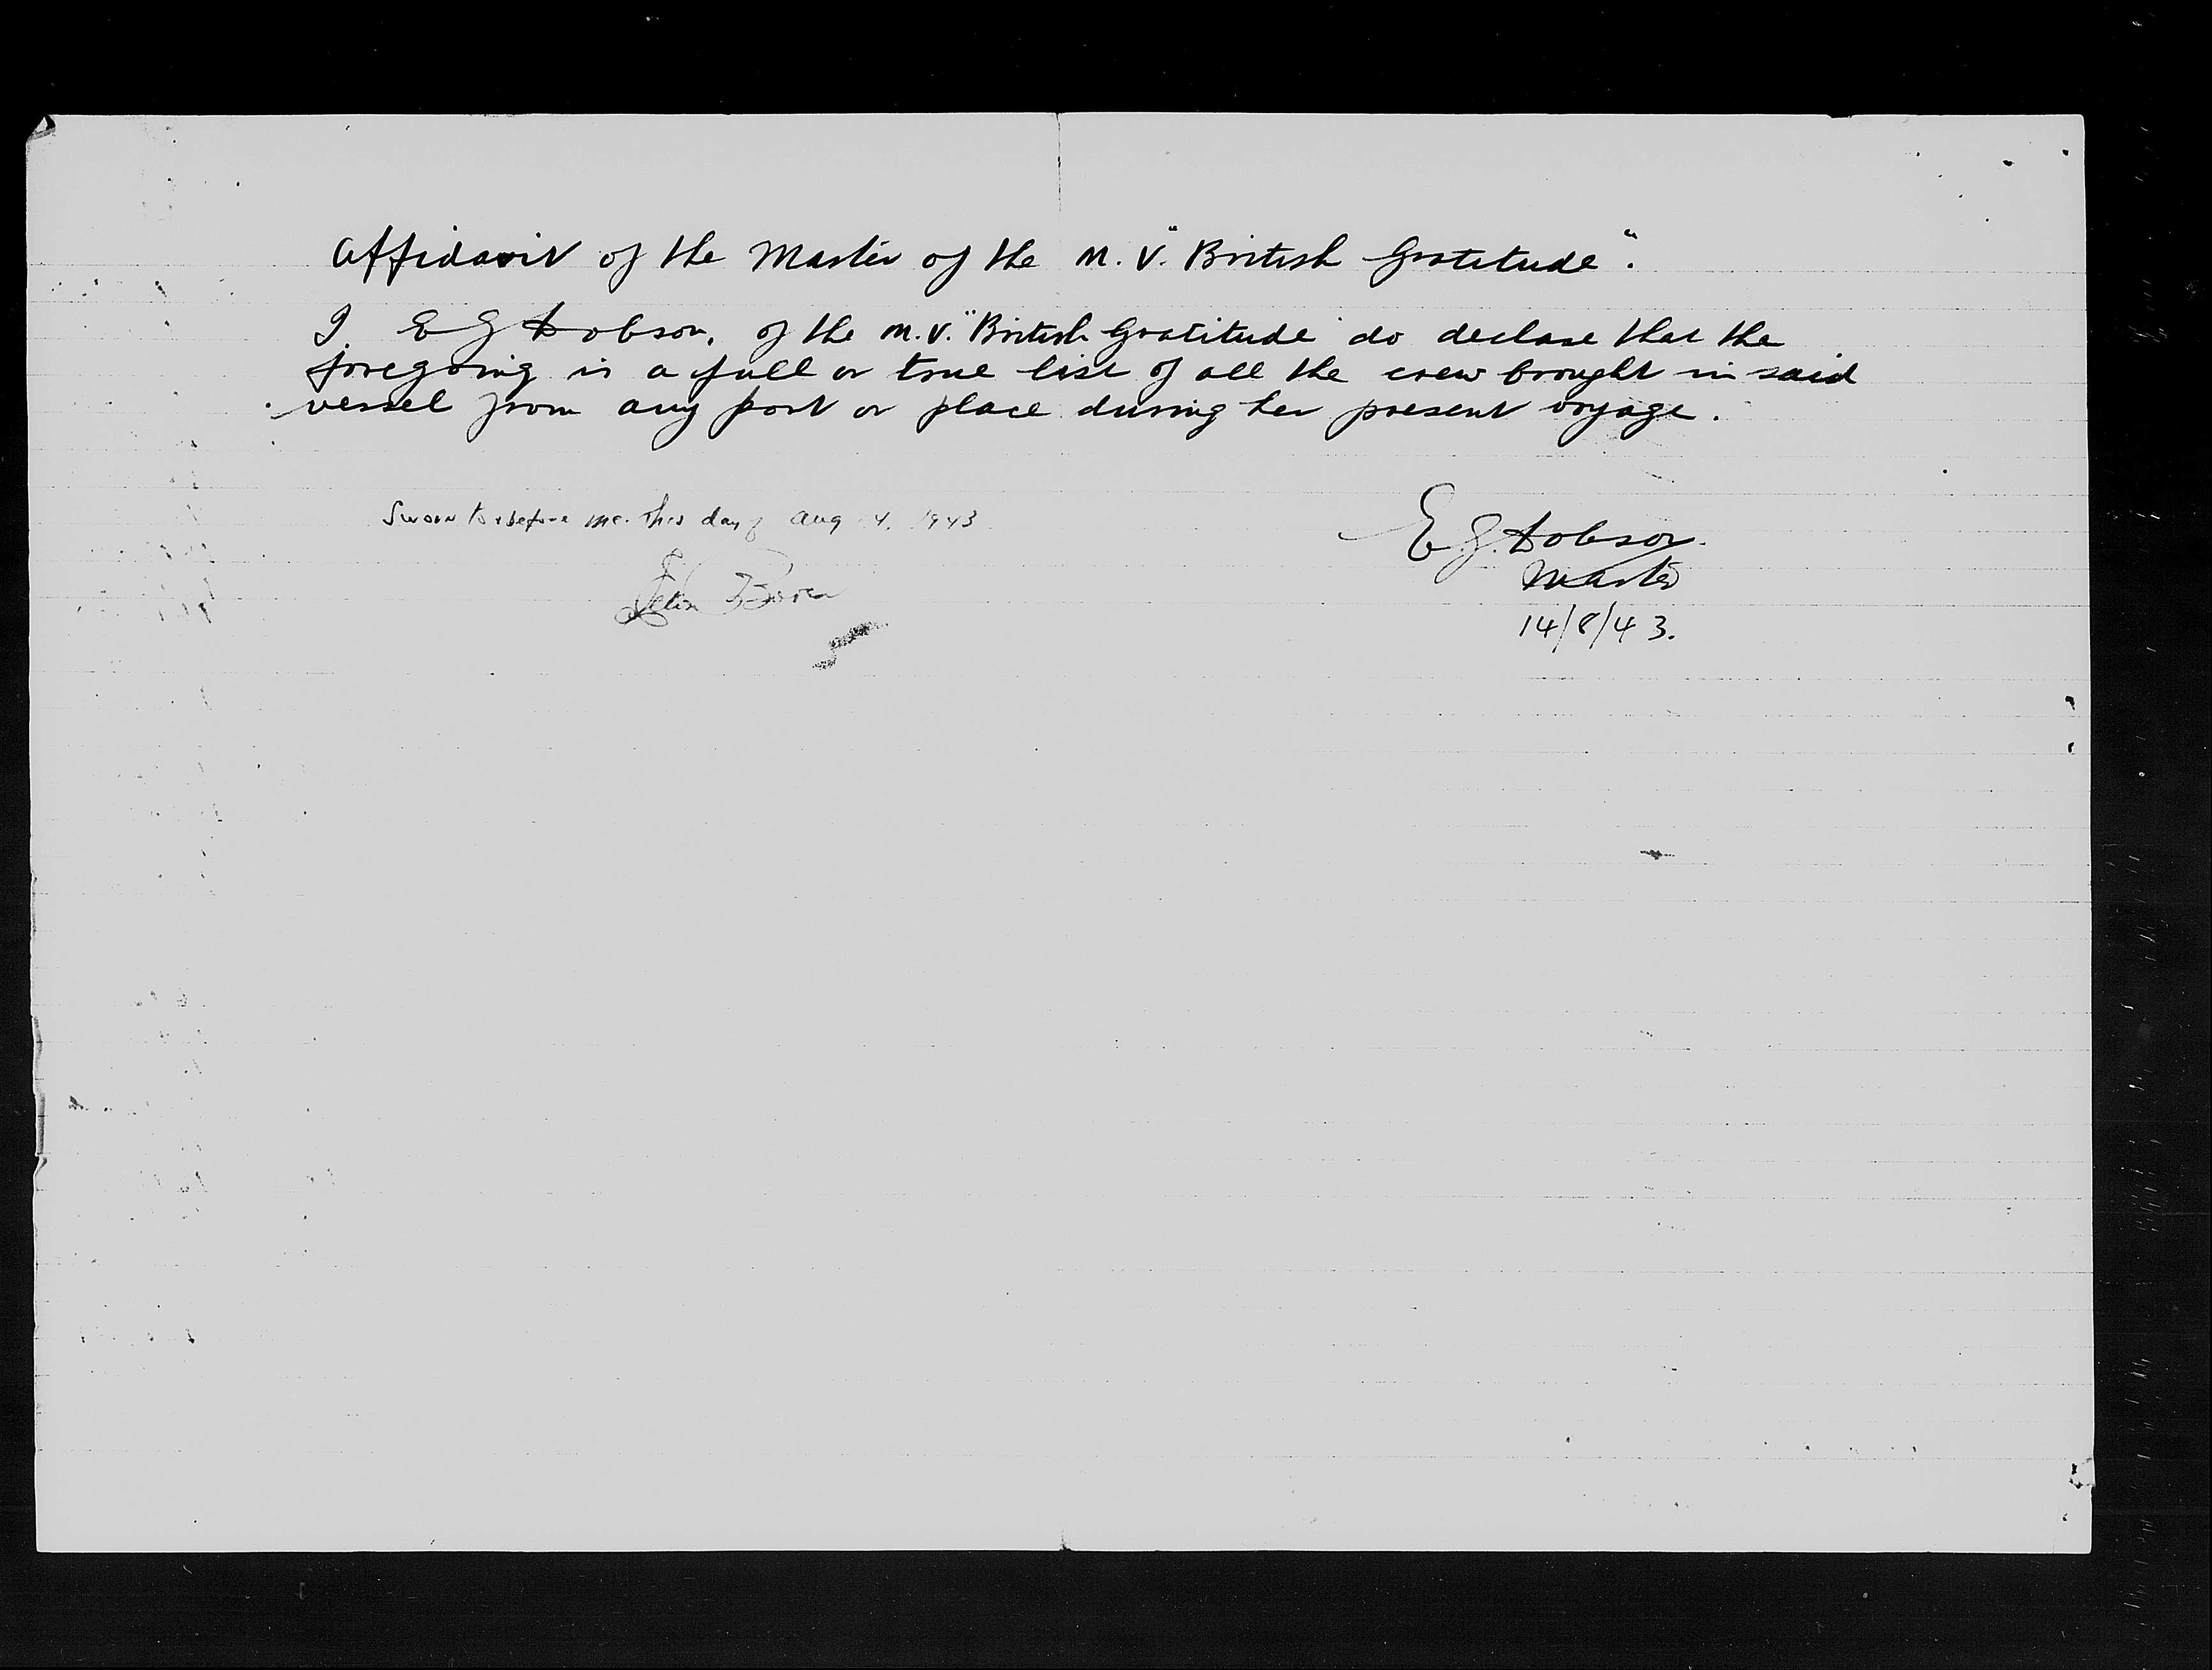 Affidavit of the Master of the M.V. "British Gratitude".
I E G Dobson, of the M.V. "British Gratitude" do declare that the
foregoing is a full or true list of all the crew brought in said
vessel from any port or place during her present voyage.
Sworn to & before me this day of Aug 14, 1943
E.G. Dobson.
Master
14/8/43.